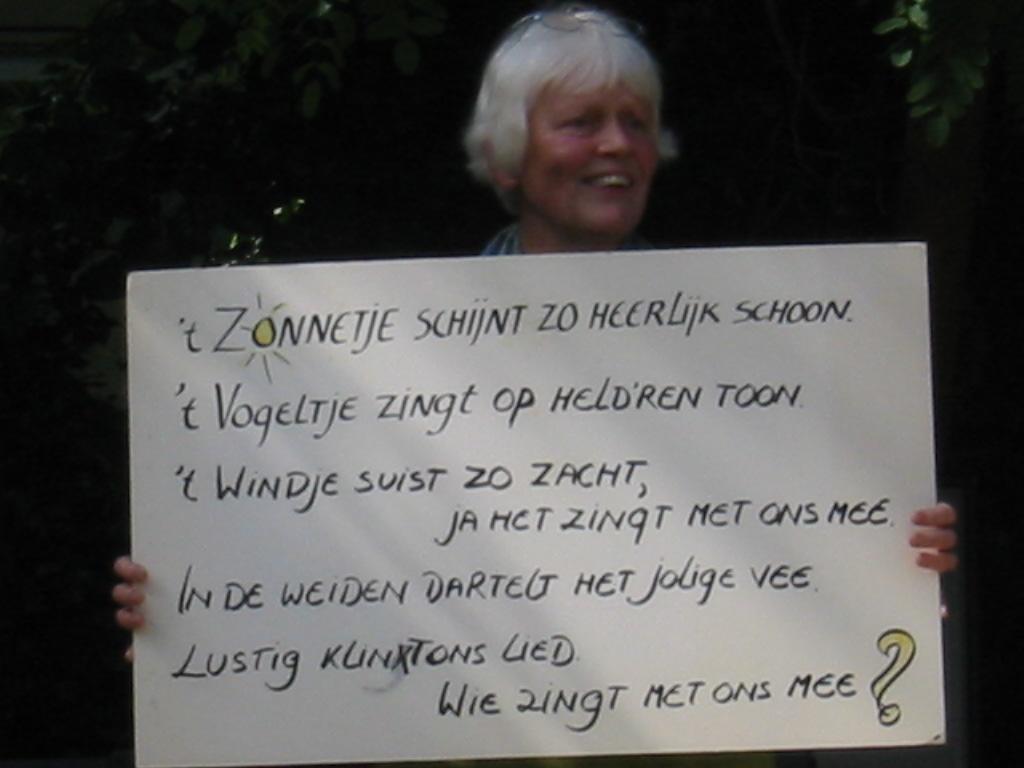 't ZONNETJE SCHIJNT ZO HEERLIJK SCHOON.
't VOGELTJE ZINGT OP HELD'REN TOON.
't WINDJE SUIST ZO ZACHT,
JA HET ZINGT MET ONS MEE.
IN DE WEIDEN DARTELT HET JOLIGE VEE.
LUSTIG KLINKT ONS LIED.
WIE ZINGT MET ONS MEE?